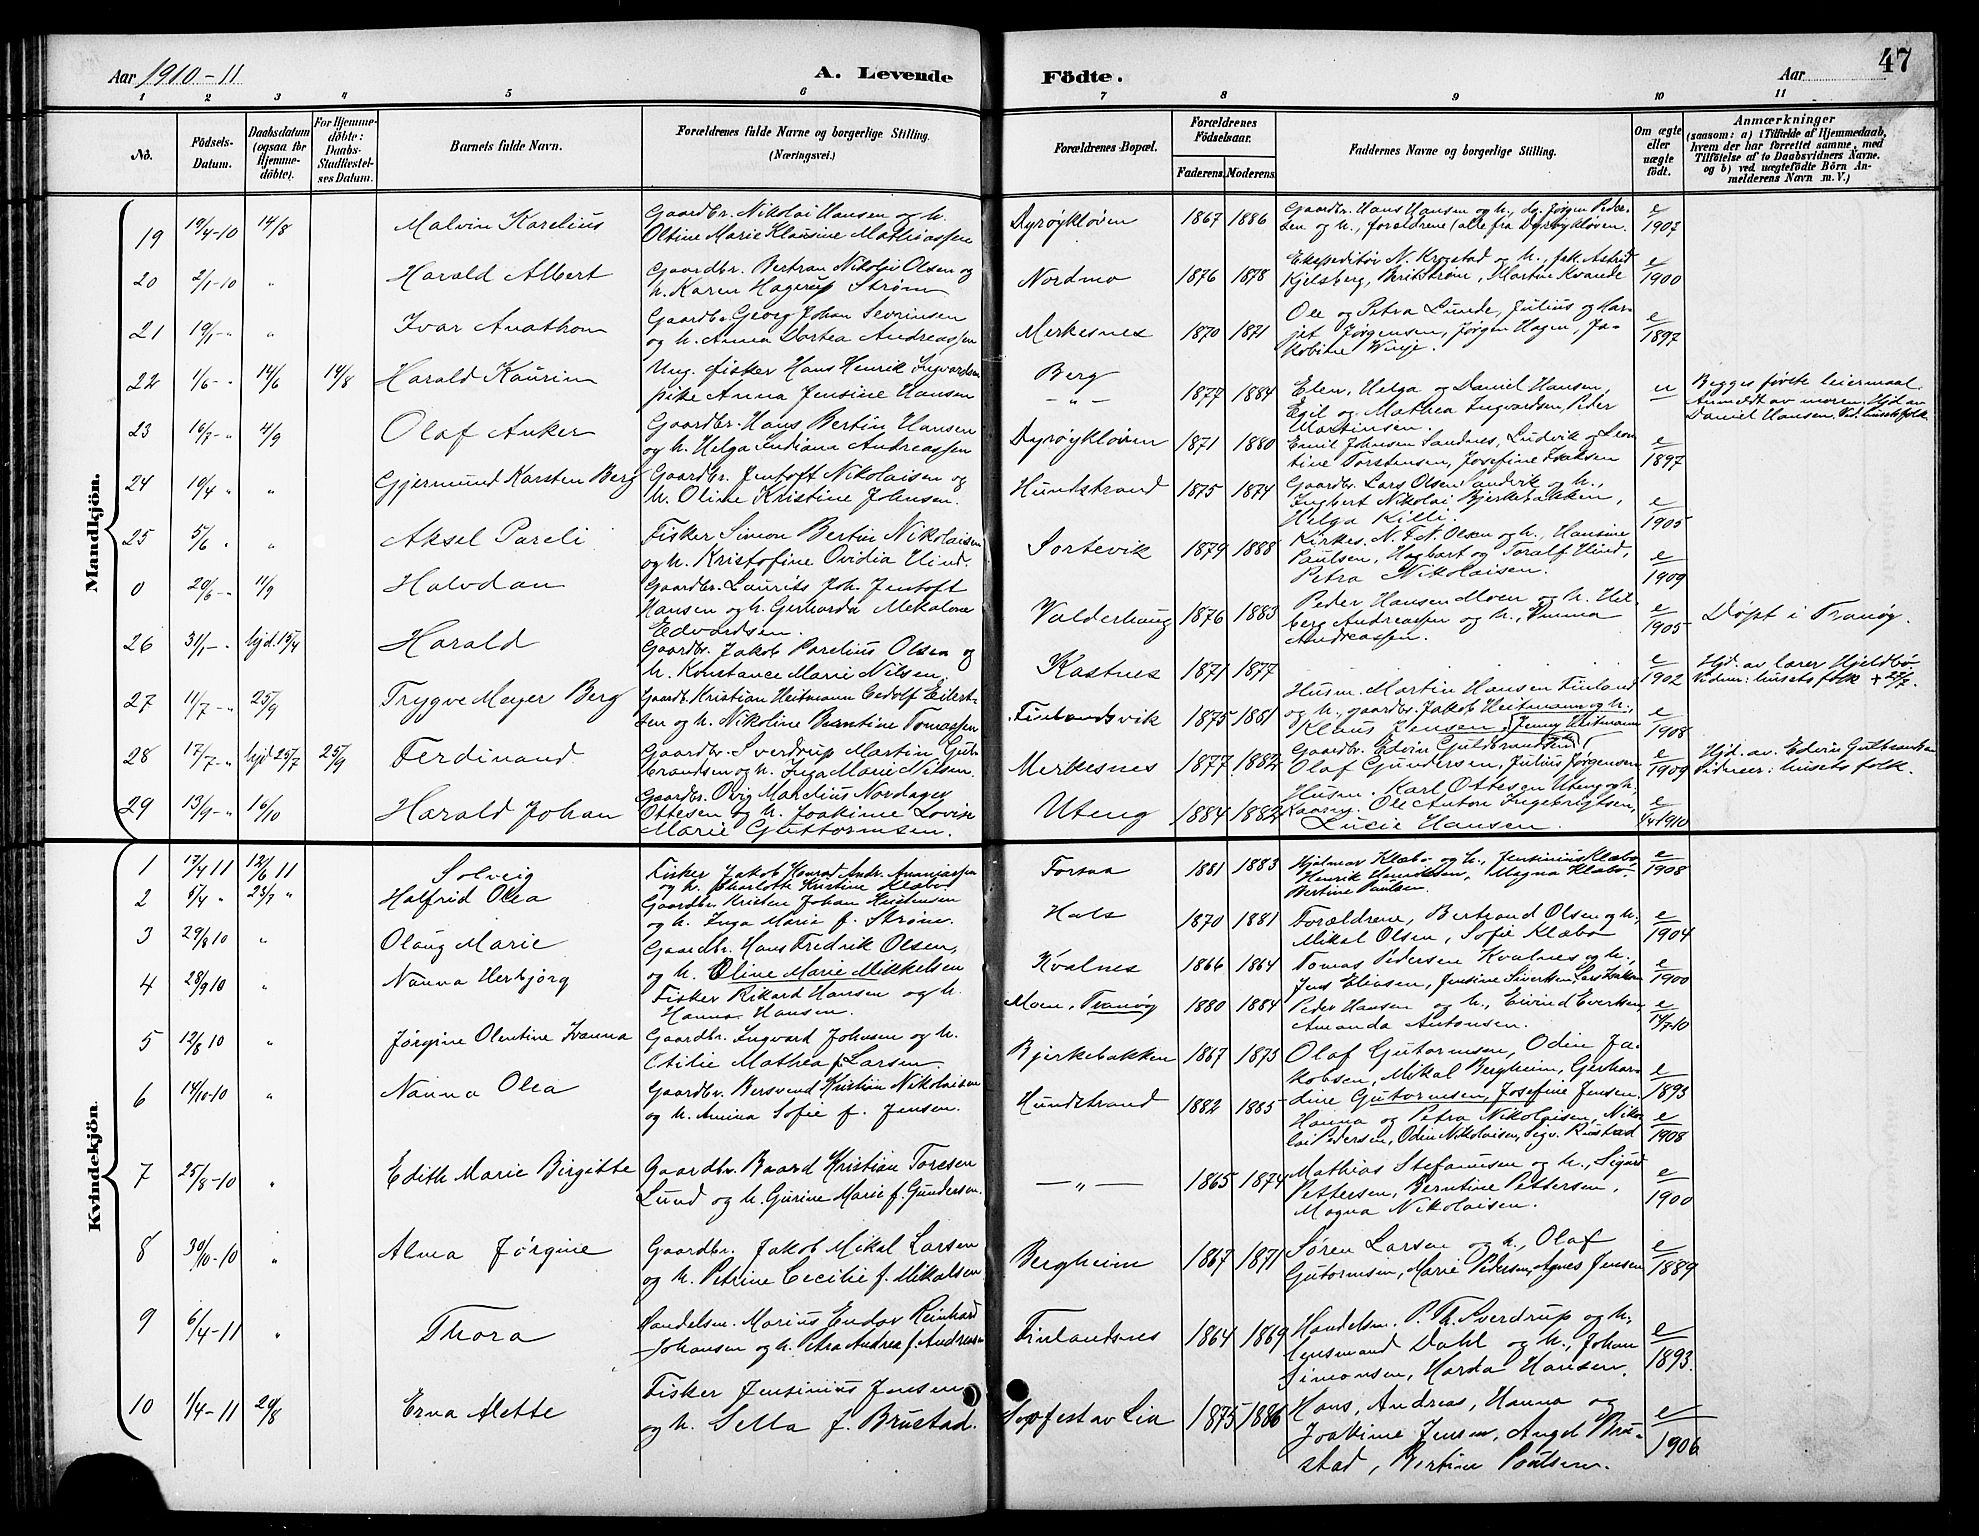 Aar 1910-11
A. Levende Födte.
Aar
47
1 2 3 4 5 6 7 8 9 10 11
No.
Födsels-Datum.
Daabsdatum (ogsaa for Hjemme-döbte).
For Hjemme-döbte: Daabs-Stadfæstel-ses Datum.
Barnets fulde Navn.
Forældrenes fulde Navne og borgerlige Stilling.
(Næringsvei.)
Forældrenes Bopæl.
Forældrenes Födselsaar.
Faderens. Moderens.
Faddernes Navne og borgerlige Stilling.
Om ægte eller uægte födt.
Anmærkninger
(saasom: a) i Tilfælde af Hjemmedaab, hvem der har forrettet samme, med Tilföielse af to Daabsvidners Navne. og b) ved uægtefödte Börn An-melderens Navn m. V.)
Mandkjön.
19 19/4-10 14/8 Malvin Karelius Gaardbr. Nikolai Hansen og h. Oltine Marie Klausine Mathiassen Dyrøykløven 1867 1886 Gaardbr. Hans Hansen og h., Jørgen Peder-sen og h., forældrene (alle fra Dyrøykløven. e/1907
20 2/1-10 " Harald Albert Gaardbr. Bertran Nikolai Olsen og h. Karen Hagerup Strøm Nordmo 1876 1878 Ekspeditør N. Krogstad og h., frk. Astrid Kjelsberg, Berit Strøm, Martin Kvande e/1900
21 19/1-" " Ivar Anathon Gaardbr. Georg Johan Sevrinsen og h. Anna Dortea Andreassen Merkesnes 1870 1871 Ole og Petra Lunde, Julius og Mar-jet Jørgensen, Jørgen Hagen, Ja-kobine Winje. e/1897
22 1/6-" 14/6 14/8 Harald Kaurin Ung. fisker Hans Henrik Ingvardsen pike Anna Jensine Hansen Berg -"- 1877 1884 Elen, Helga og Daniel Hansen, Egil og Mathea Ingvardsen, Peder Martinsen. u Begges første leiermaal. Anmeldt av moren. Hjd. av Daniel Hansen. Vid. husets folk
23 16/7-" 4/9 Olaf Anker Gaardbr. Hans Bertin Hansen og h. Helga Indiana Andreassen Dyrøykløven 1871 1880 Emil Johnsen Sandnes, Ludvik og Leon-tine Torstensen, Josefine Isaksen e/1897
24 19/4 " " Gjermund Karsten Berg Gaardbr. Jentoft Nikolaisen og h. Oline Kristine Johnsen. Hundstrand 1875 1874 Gaardbr. Lars Olsen Sandvik og h., Ingbert Nikolai Bjerkebakken, Helga Killi. e/1905
25 5/6 " " Aksel Pareli Fisker Simon Bertin Nikolaisen og h. Kristofine Ovidia Hind. Sortevik 1879 1888 Kirkes. N. F. N. Olsen og h., Hansine Paulsen, Hagbart og Toralf Hind, Petra Nikolaisen. e/1909
0 20/6-" 11/9 Halvdan Gaardbr. Laurits Joh. Jentoft Hansen og h. Gerharda Mekaline Edvardsen. Valderhaug 1876 1883 Peder Hansen Moen og h. Hil-berg Andreassen og h., Emma Andreassen. e/1905 Døpt i Tranøy.
26 31/1-" hjd. 15/4 Harald Gaardbr. Jakob Parelius Olsen og h. Konstance Marie Nilsen Kastnes 1871 1877 e/1902 Hjd. av lærer Hjeldbø. Vidner: husets folk + 27/7.
27 11/7-" 25/9 Trygve Meyer Berg Gaardb. Kristian Heitmann Cedolf Eilert-sen og h. Nikoline Berntine Tomassen Finlandsvik 1875 1881 Husm. Martin Hansen Finland og h. gaardbr. Jakob Heitmann og h. Klaus Jensen, Jenny Heitmann e/1908
28 17/7-" hjd 25/7 25/9 Ferdinand Gaardbr. Sverdrup Martin Gul-brandsen og h. Inga Marie Nilsen. Merkesnes 1877 1882 Gaardbr. Edvin Gulbrandsen Olaf Gundersen, Julius Jørgensen e/1909 Hjd. av. Edvin Gulbrandsen Vidner: husets folk.
29 13/9-" 16/10 Harald Johan Gaardbr. Ovig Mandius Nordager Ottesen og h. Joakime Lovise Marie Guttormsen. Uteng 1884 1882 Husm. Karl Ottesen Uteng og h. Ole Anton Ingebrigtsen, Lucie Hansen. e/1/4 1910
Kvindekjön.
1 17/4 11 12/6 11 Solveig Fisker Jakob Konrad Andr. Ananiassen og h. Charlotte Kristine Klæbo Forsaa 1881 1883 Hjalmar Klæbo og h., Jensinius Klæbo Henrik Henriksen, Magna Klæbo, Bertine Paulsen. e/1908
2 5/4 " 23/7 " Halfrid Olea Gaardbr. Kristen Johan Kristensen og h. Inga Marie f. Strøm. Hals 1870 1881 Forældrene, Bertrand Olsen og h. Mikal Olsen, Sofie Klæbo e/1904
3 29/8 10 " Olaug Marie Gaardbr. Hans Fredrik Olsen, og h. Oline Marie Mikkelsen Kvalnes 1866 1864 Tomas Pedersen Kvalnes og h., Jens Eliasen, Jensine Sivertsen, Lars Isaksen e/1900
4 28/9 10 " Nanna Herbjørg Fisker Rikard Hansen og h. Hanna Hansen. Moen, Tranøy 1880 1884 Peder Hansen og h., Eivind Evertsen, Amanda Antonsen. e/14/7-10
5 12/8 10 " Jørgine Olentine Ivanna Gaardbr. Ingvard Johnsen og h. Cecilie Mathea f. Larsen. Bjerkebakken 1867 1873 Olaf Gutormsen, Odin Ja-kobsen, Mikal Bergheim, Gerhar-dine Gutormsen, Josefine Jensen. e/1893
6 14/10-10 " Nanna Olea Gaardbr. Bersvend Kristian Nikolaisen og h. Amina Sofie f. Jensen. Hundstrand 1882 1885 Hanna og Petra Nikolaisen, Niko-lai Pedersen, Odin Nikolaisen, Sigv. Rustad e/1908
7 25/8-10 " Edith Marie Birgitte Gaardbr. Baard Kristian Toresen Lund og h. Gurine Marie f. Gundersen. -"- 1865 1874 Mathias Stefanusen og h., Sigurd Pettersen, Berntine Pettersen, Magna Nikolaisen. e/1900
8 30/10-10 " Alma Jørgine Gaardbr. Jakob Mikal Larsen og h. Petrine Cecilie f. Mikalsen Bergheim 1867 1871 Søren Larsen og h., Olaf Gutormsen, Marie Pedersen, Agnes Jensen e/1889
9 6/4-11 " Thora Handelsm. Marius Endor Reinhard Johansen og h. Petra Andrea f. Andresen Finlandsnes 1864 1869 Handelsm. P. Th. Sverdrup og h., lensmand Dahl og h., Johan Simonsen, Harda Hansen. e/1893.
10 1/4-11 20/8 Erna Alette Fisker Jensinius Jensen og h. Sella f. Brustad. Sopfest av Lia 1875 1886 Hans, Andreas, Hanna og Joakime Jensen, Angel Bru-stad, Bertine Poulsen. e/1906